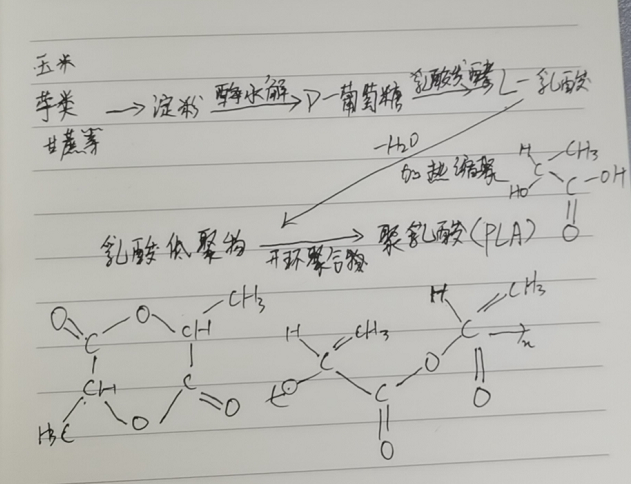 玉米
芋类 → 淀粉 酶水解 D-葡萄糖 乳酸发酵 L-乳酸
甘蔗等
-H2O
加热缩聚
H CH3
HO C C-OH
O
乳酸低聚物 开环聚合物 聚乳酸(PLA)
CH3 H CH3
O O CH H CH3
C C O C n
CH C O O C O
H3C O O